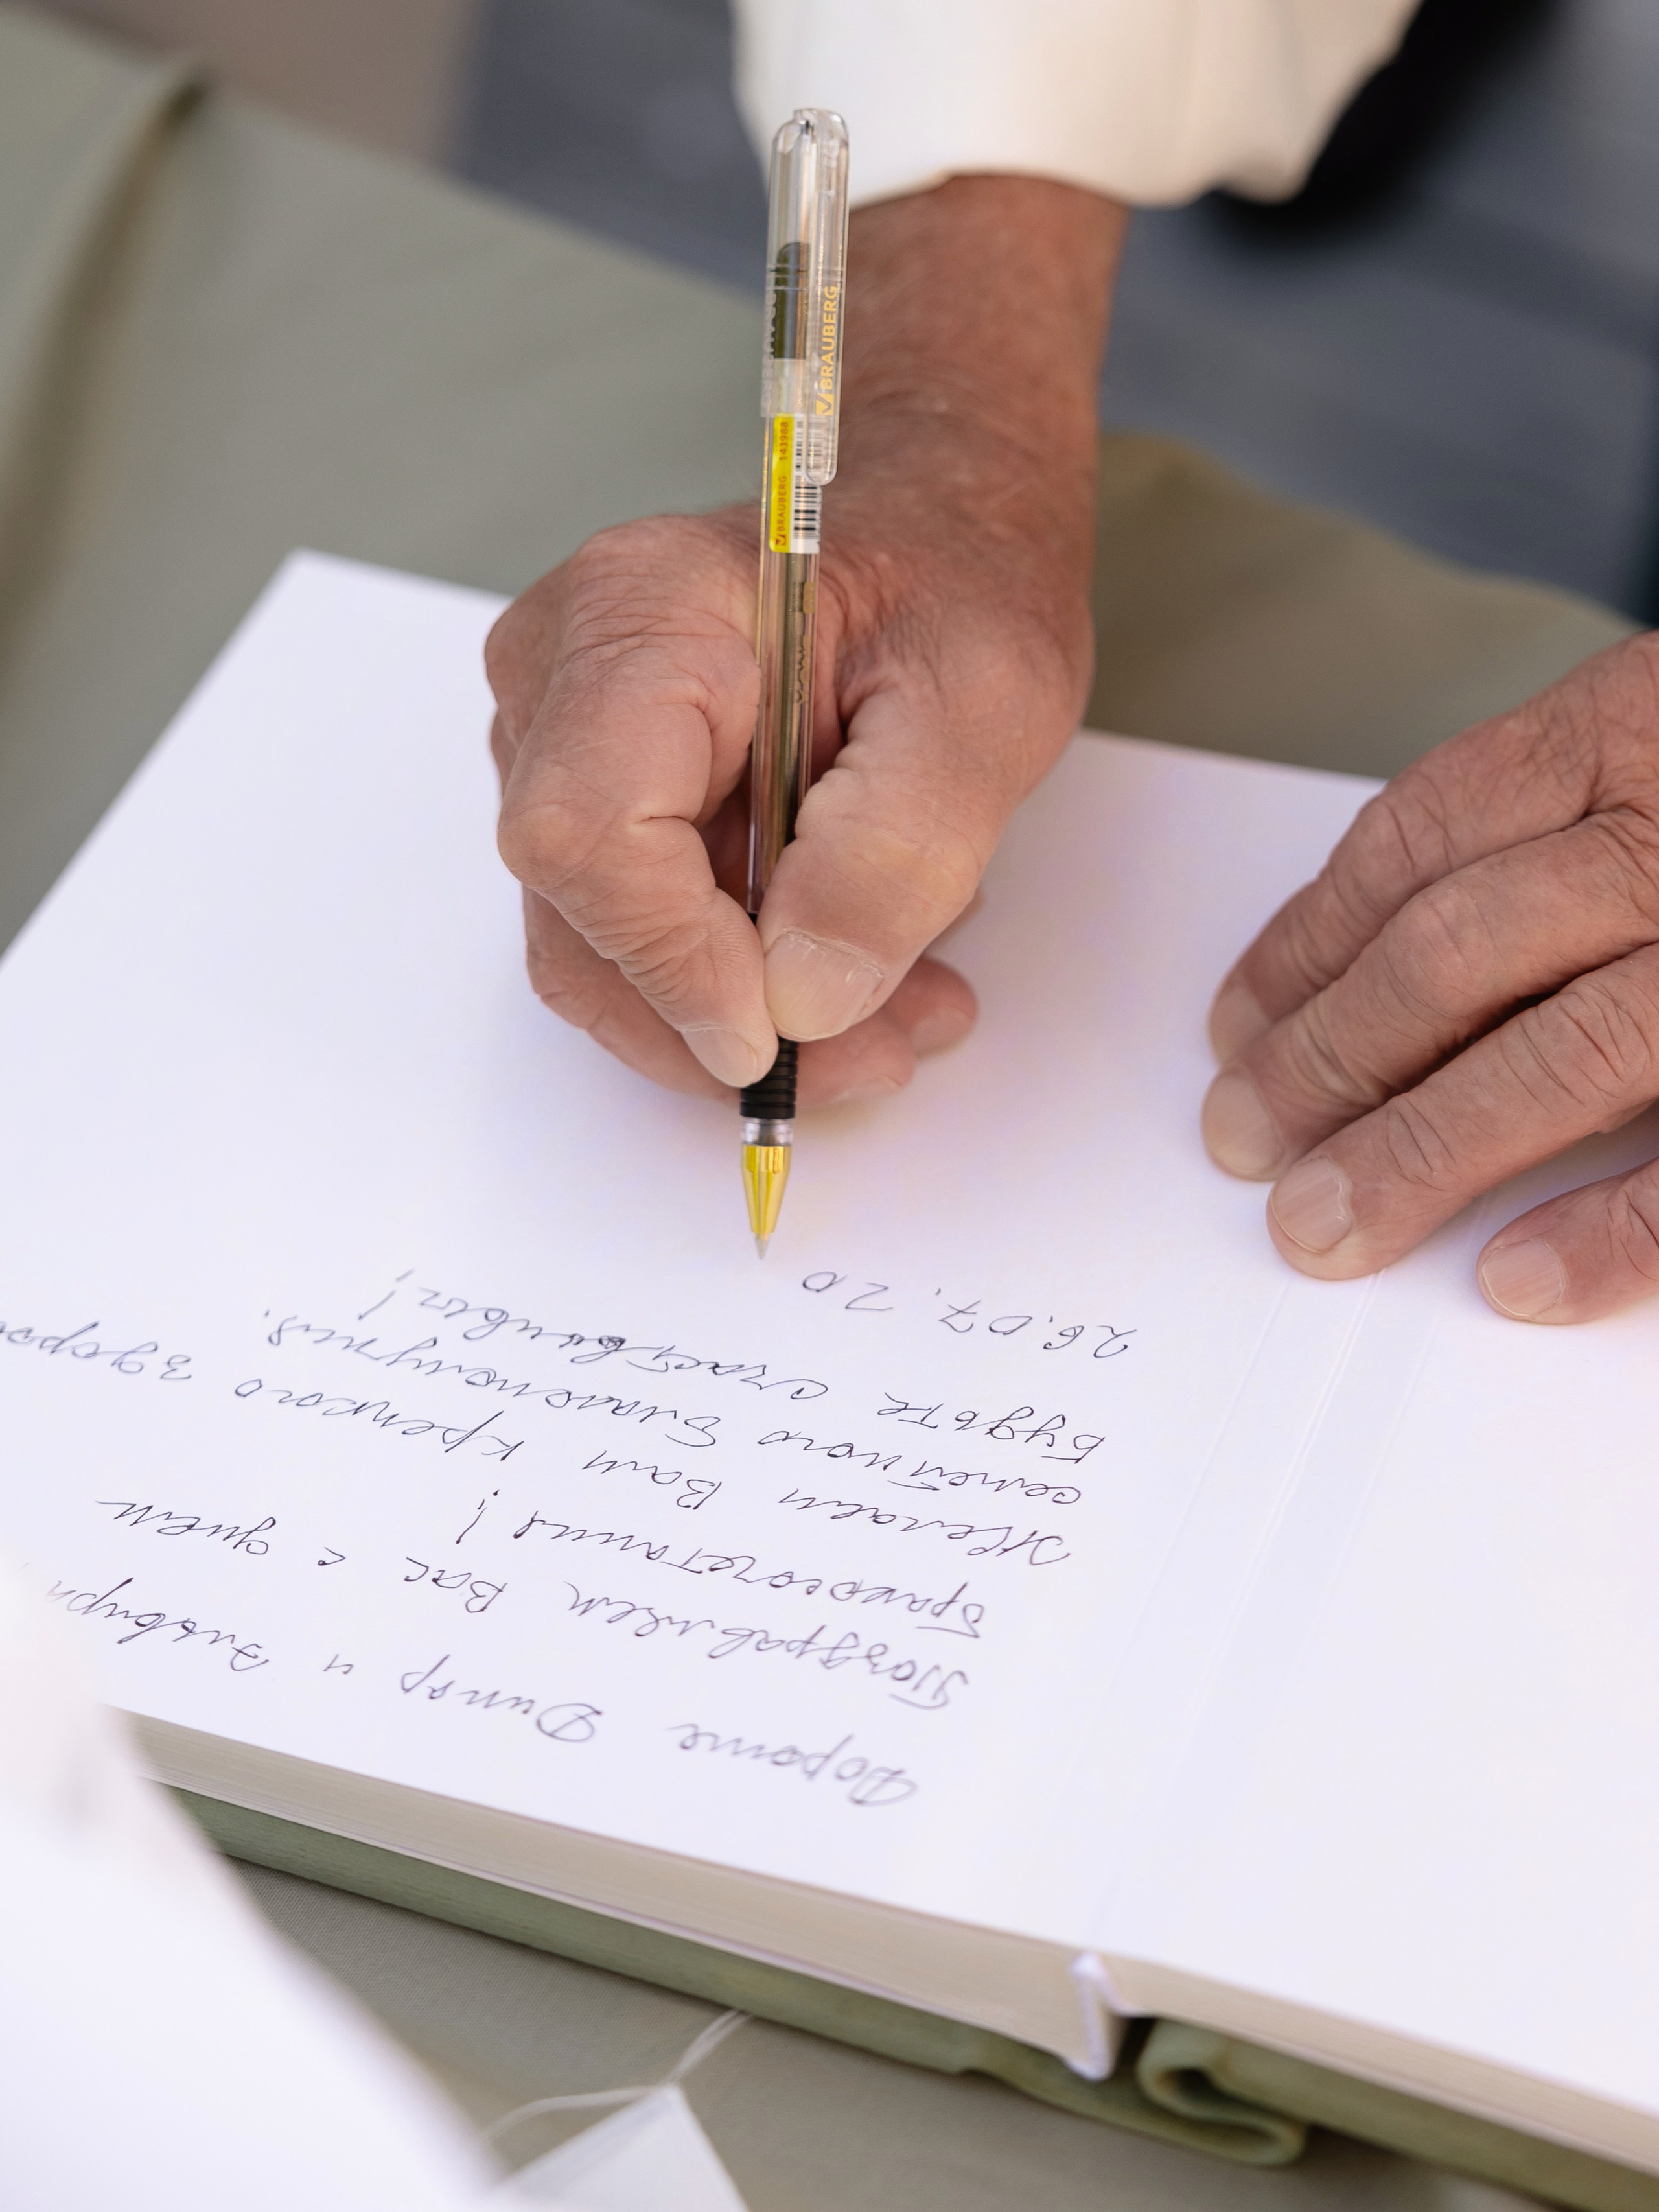 Дорогие Динар и Эльвира
Поздравляем Вас с днем
бракосочетания!
Желаем Вам крепкого здоров
семейного благополучия.
Будьте счастливы!
26.07.20
BRAUBERG
BRAUBERG 143988